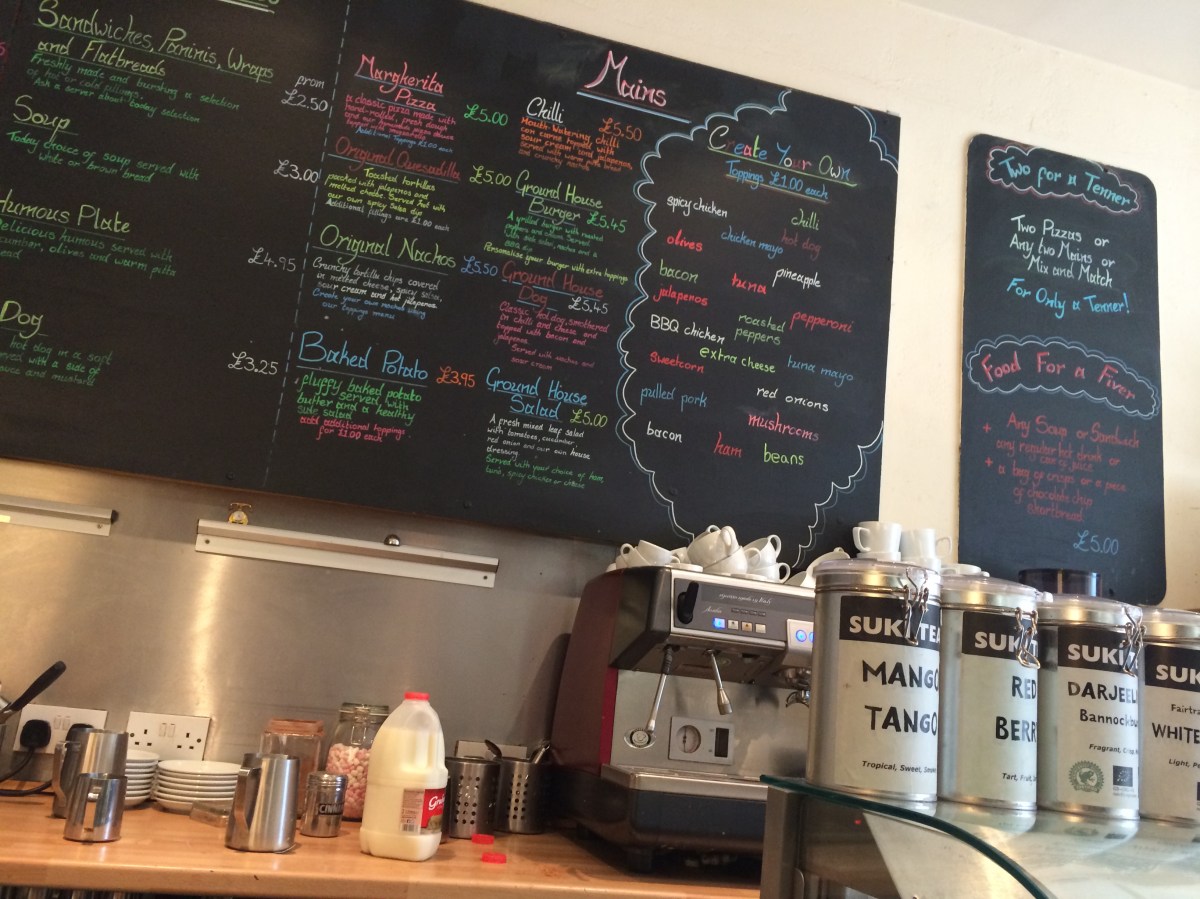 Sandwiches, Paninis, Wraps
and Flatbreads
Freshly made and bursting a selection
of hot or cold fillings.
Ask a server about todays selection
from
£2.50
Soup
Todays choice of soup served with
white or brown bread
£3.00
Humous Plate
Delicious humous served with
cucumber, olives and warm pitta
bread
£4.95
Dog
hot dog in a soft
served with a side of
sauce and mustard
£3.25
Margherita
Pizza
£5.00
a classic pizza made with
hand-rolled, fresh dough
Additional Toppings £1.00 each
Original Quesadilla
£5.00
Toasted tortillas
packed with jalapenos and
melted cheese. Served hot with
our own spicy salsa dip
Additional fillings are £1.00 each
Original Nachos
£5.50
Crunchy tortilla chips covered
in melted cheese, spicy salsa,
sour cream and hot jalapenos
Create your own nachos using
our toppings menu
Baked Potato
£3.95
fluffy baked potato
served with
butter and a healthy
side salad
add additional toppings
for £1.00 each
Mains
Chilli
£5.50
Mouth-Watering chilli
con carne topped with
sour cream and jalapenos,
served with warm pitta bread
and crunchy nachos
Ground House
Burger £5.45
A grilled burger with roasted
peppers and
Personalise your burger with extra toppings
Ground House
Dog
£5.45
Classic hot dog, smothered
in chilli and cheese and
topped with bacon and
jalapenos
Served with nachos and
sour cream
Ground House
Salad £5.00
A fresh mixed leaf salad
with tomatoes, cucumber,
red onion and our own house
dressing
Served with your choice of ham,
tuna, spicy chicken or cheese
Create Your Own
Toppings £1.00 each
spicy chicken
chilli
olives
chicken mayo
hot dog
bacon
tuna
pineapple
jalapenos
BBQ chicken
roasted
peppers
pepperoni
sweetcorn
extra cheese
tuna mayo
pulled pork
red onions
bacon
mushrooms
ham
beans
Two for a Tenner
Two Pizzas or
Any two Mains or
Mix and Match
For Only a Tenner!
Food For a Fiver
Any Soup or Sandwich
+ any regular hot drink or
can of juice
+ a bag of crisps or a piece
of chocolate chip
shortbread
£5.00
SUKI TEA
MANGO
TANGO
Tropical, Sweet,
SUKI
RED
BERR
Tart, Fruit,
SUKI
DARJEEL
Bannockbu
Fragrant, Crisp,
SUK
Fairtra
WHITE
Light, Pe